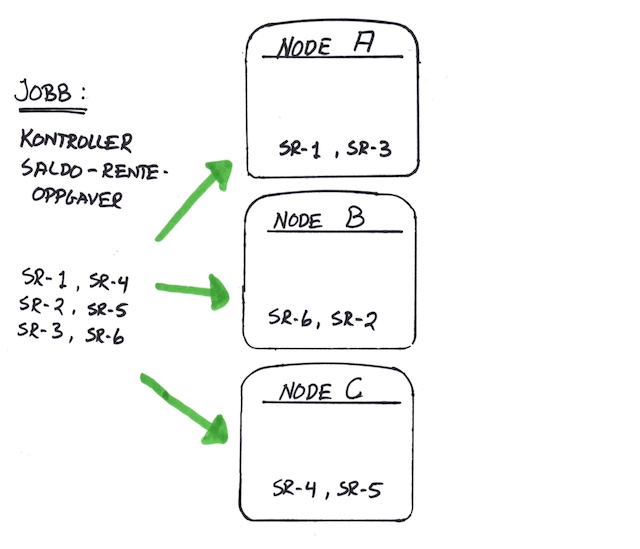 JOBB :
KONTROLLER
SALDO-RENTE-
OPPGAVER
SR-1 , SR-4
SR-2 , SR-5
SR-3 , SR-6
NODE A
SR-1 , SR-3
NODE B
SR-6, SR-2
NODE C
SR-4 , SR-5